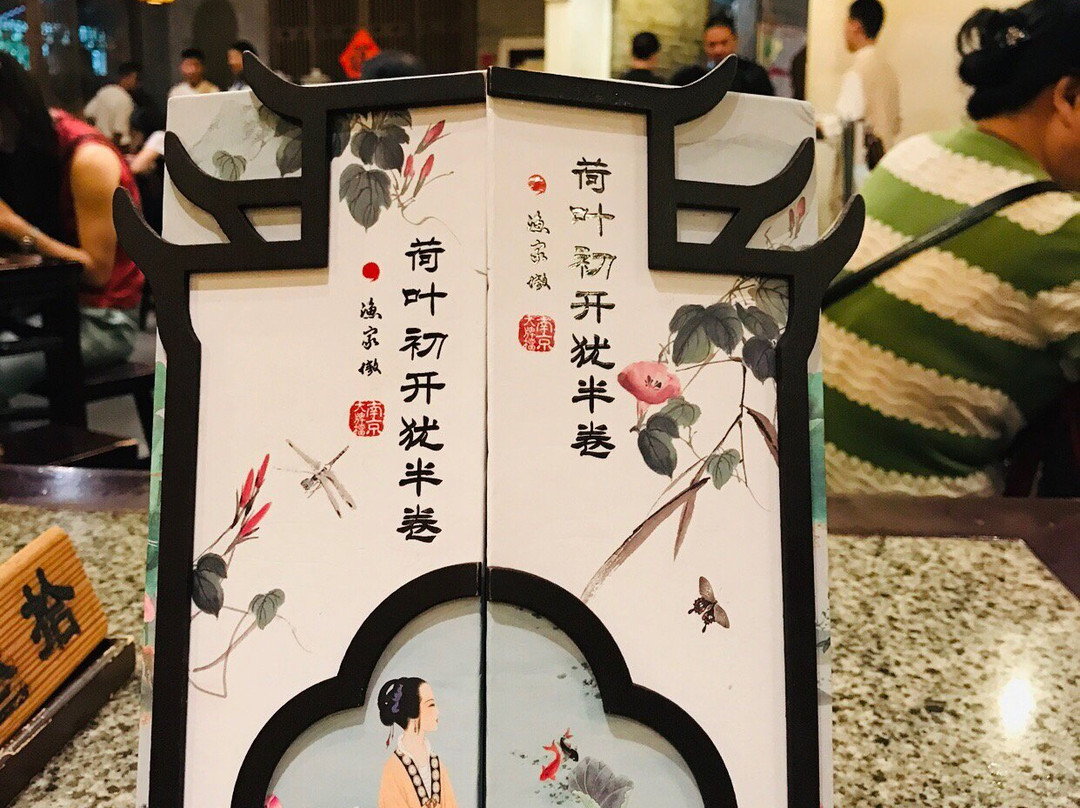 荷叶初开犹半卷
渔家傲
南京
大牌档
荷叶初开犹半卷
渔家傲
南京
大牌档
拾